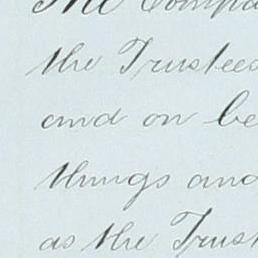 The Compa
the Trustees
and on be
things and
as the Trust